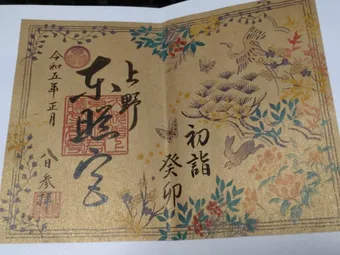 初詣
癸卯
上野
東照宮
令和五年正月
八日参拝